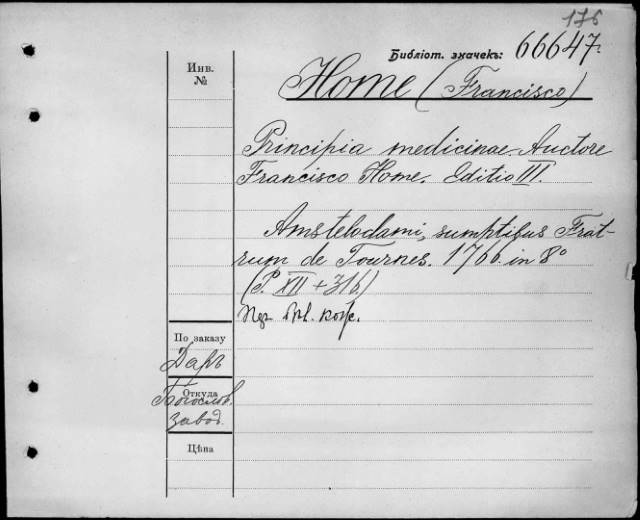 176
Библіот. значекъ: 66647.
Инв.
№
Home (Francisco)
Principia medicinae. Auctore
Francisco Home. Editio III.
Amstelodami, sumptibus Frat-
rum de Tournes. 1766. in 8°
(P. XII + 316.)
Пер. бѣл. кож.
По заказу
Даръ
Откуда
Богослов.
завод.
Цѣна